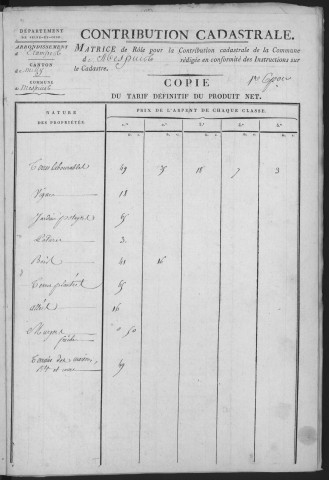 DÉPARTEMENT
DE SEINE-ET-OISE.
ARRONDISSEMENT
d'Etampes
CANTON
de Milly
COMMUNE
de Mespuits
CONTRIBUTION CADASTRALE.
MATRICE de Rôle pour la Contribution cadastrale de la Commune
de Mespuits rédigée en conformité des Instructions sur
le Cadastre.
COPIE
DU TARIF DÉFINITIF DU PRODUIT NET.
NATURE
DES PROPRIÉTÉS.
PRIX DE L'ARPENT DE CHAQUE CLASSE.
1re. 2e. 3e. 4e. 5e.
Terres labourables 49 18 7 3
Vignes 18
Jardins potagers
Pâtures 3
Bois 41 16
Terres plantées
16
0 50
Terrain des maisons,
49